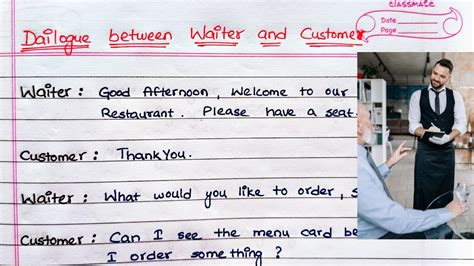 classmate
Date
Page
Dailogue between Waiter and Customer
Waiter : Good Afternoon, Welcome to our
Restaurant. Please have a seat.
Customer : Thank You.
Waiter : What would you like to order, s
Customer : Can I see the menu card be
I order something ?